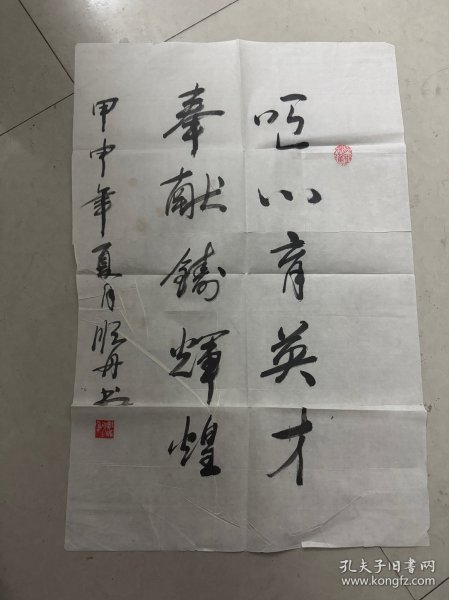 呕心育英才
奉献鑄輝煌
甲申年夏月顺丹书
孔夫子旧书网
www.kongfz.com